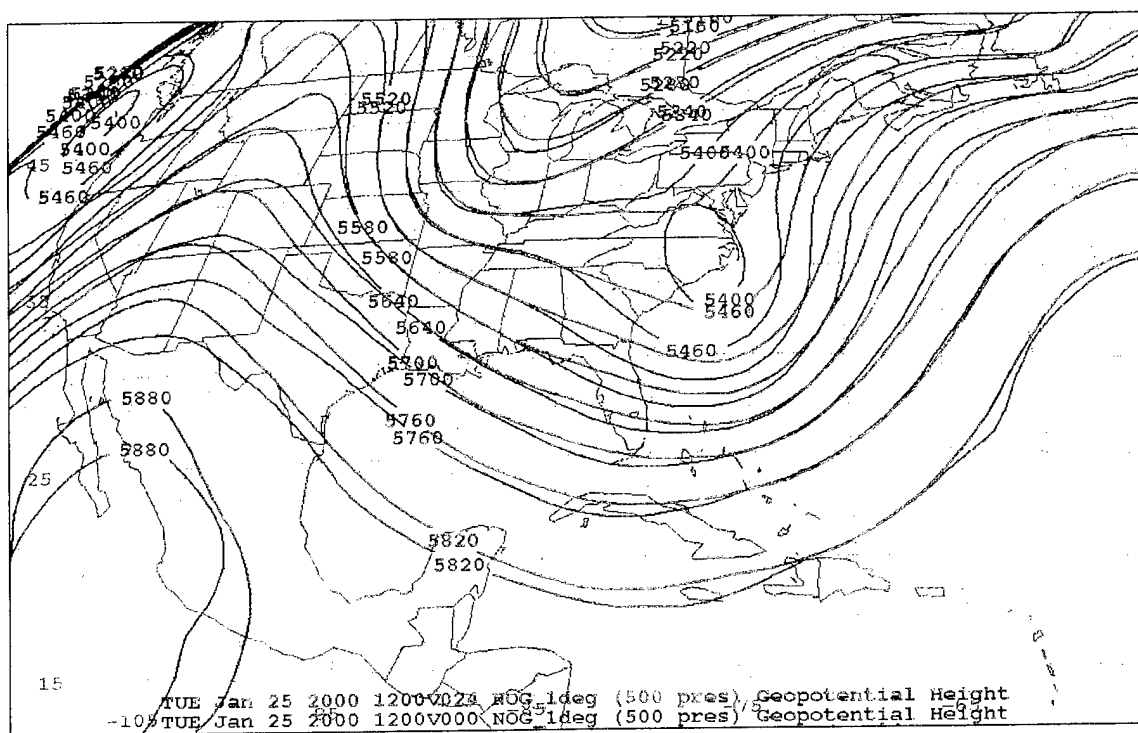 5160
5220 5220
5220
5280
5400 5340
5460 5400 5340
5520
5520
5400 5400
45 5400
5460
5460
5580
5580
35 5640 5400
5640 5460
5700 5460
5700
5880 5760
5760
5880
25
5820
5820
15
TUE Jan 25 2000 1200V024 NOG 1deg (500 pres) Geopotential Height
TUE Jan 25 2000 1200V000 NOG 1deg (500 pres) Geopotential Height
-105 -95 -85 -75